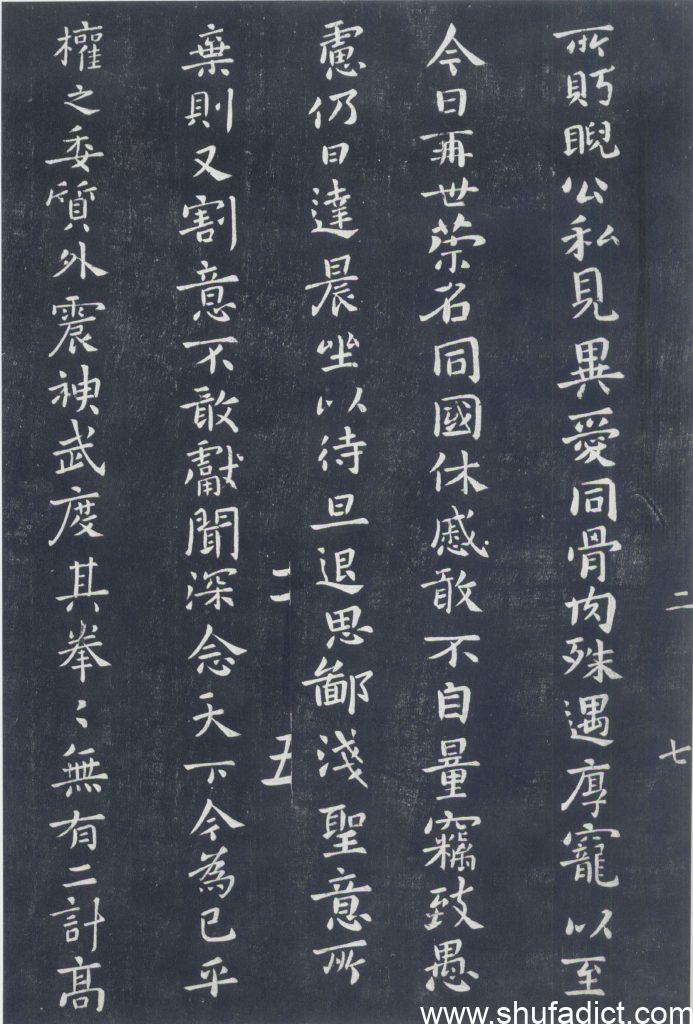 二 七
所眄睨公私見異愛同骨肉殊遇厚寵以至
今日再世荣名同國休慼敢不自量竊致愚
慮仍日達晨坐以待旦退思鄙淺聖意所
二 五
棄則又割意不敢獻聞深念天下今為已平
權之委質外震神武度其拳〻無有二計高
www.shufadict.com